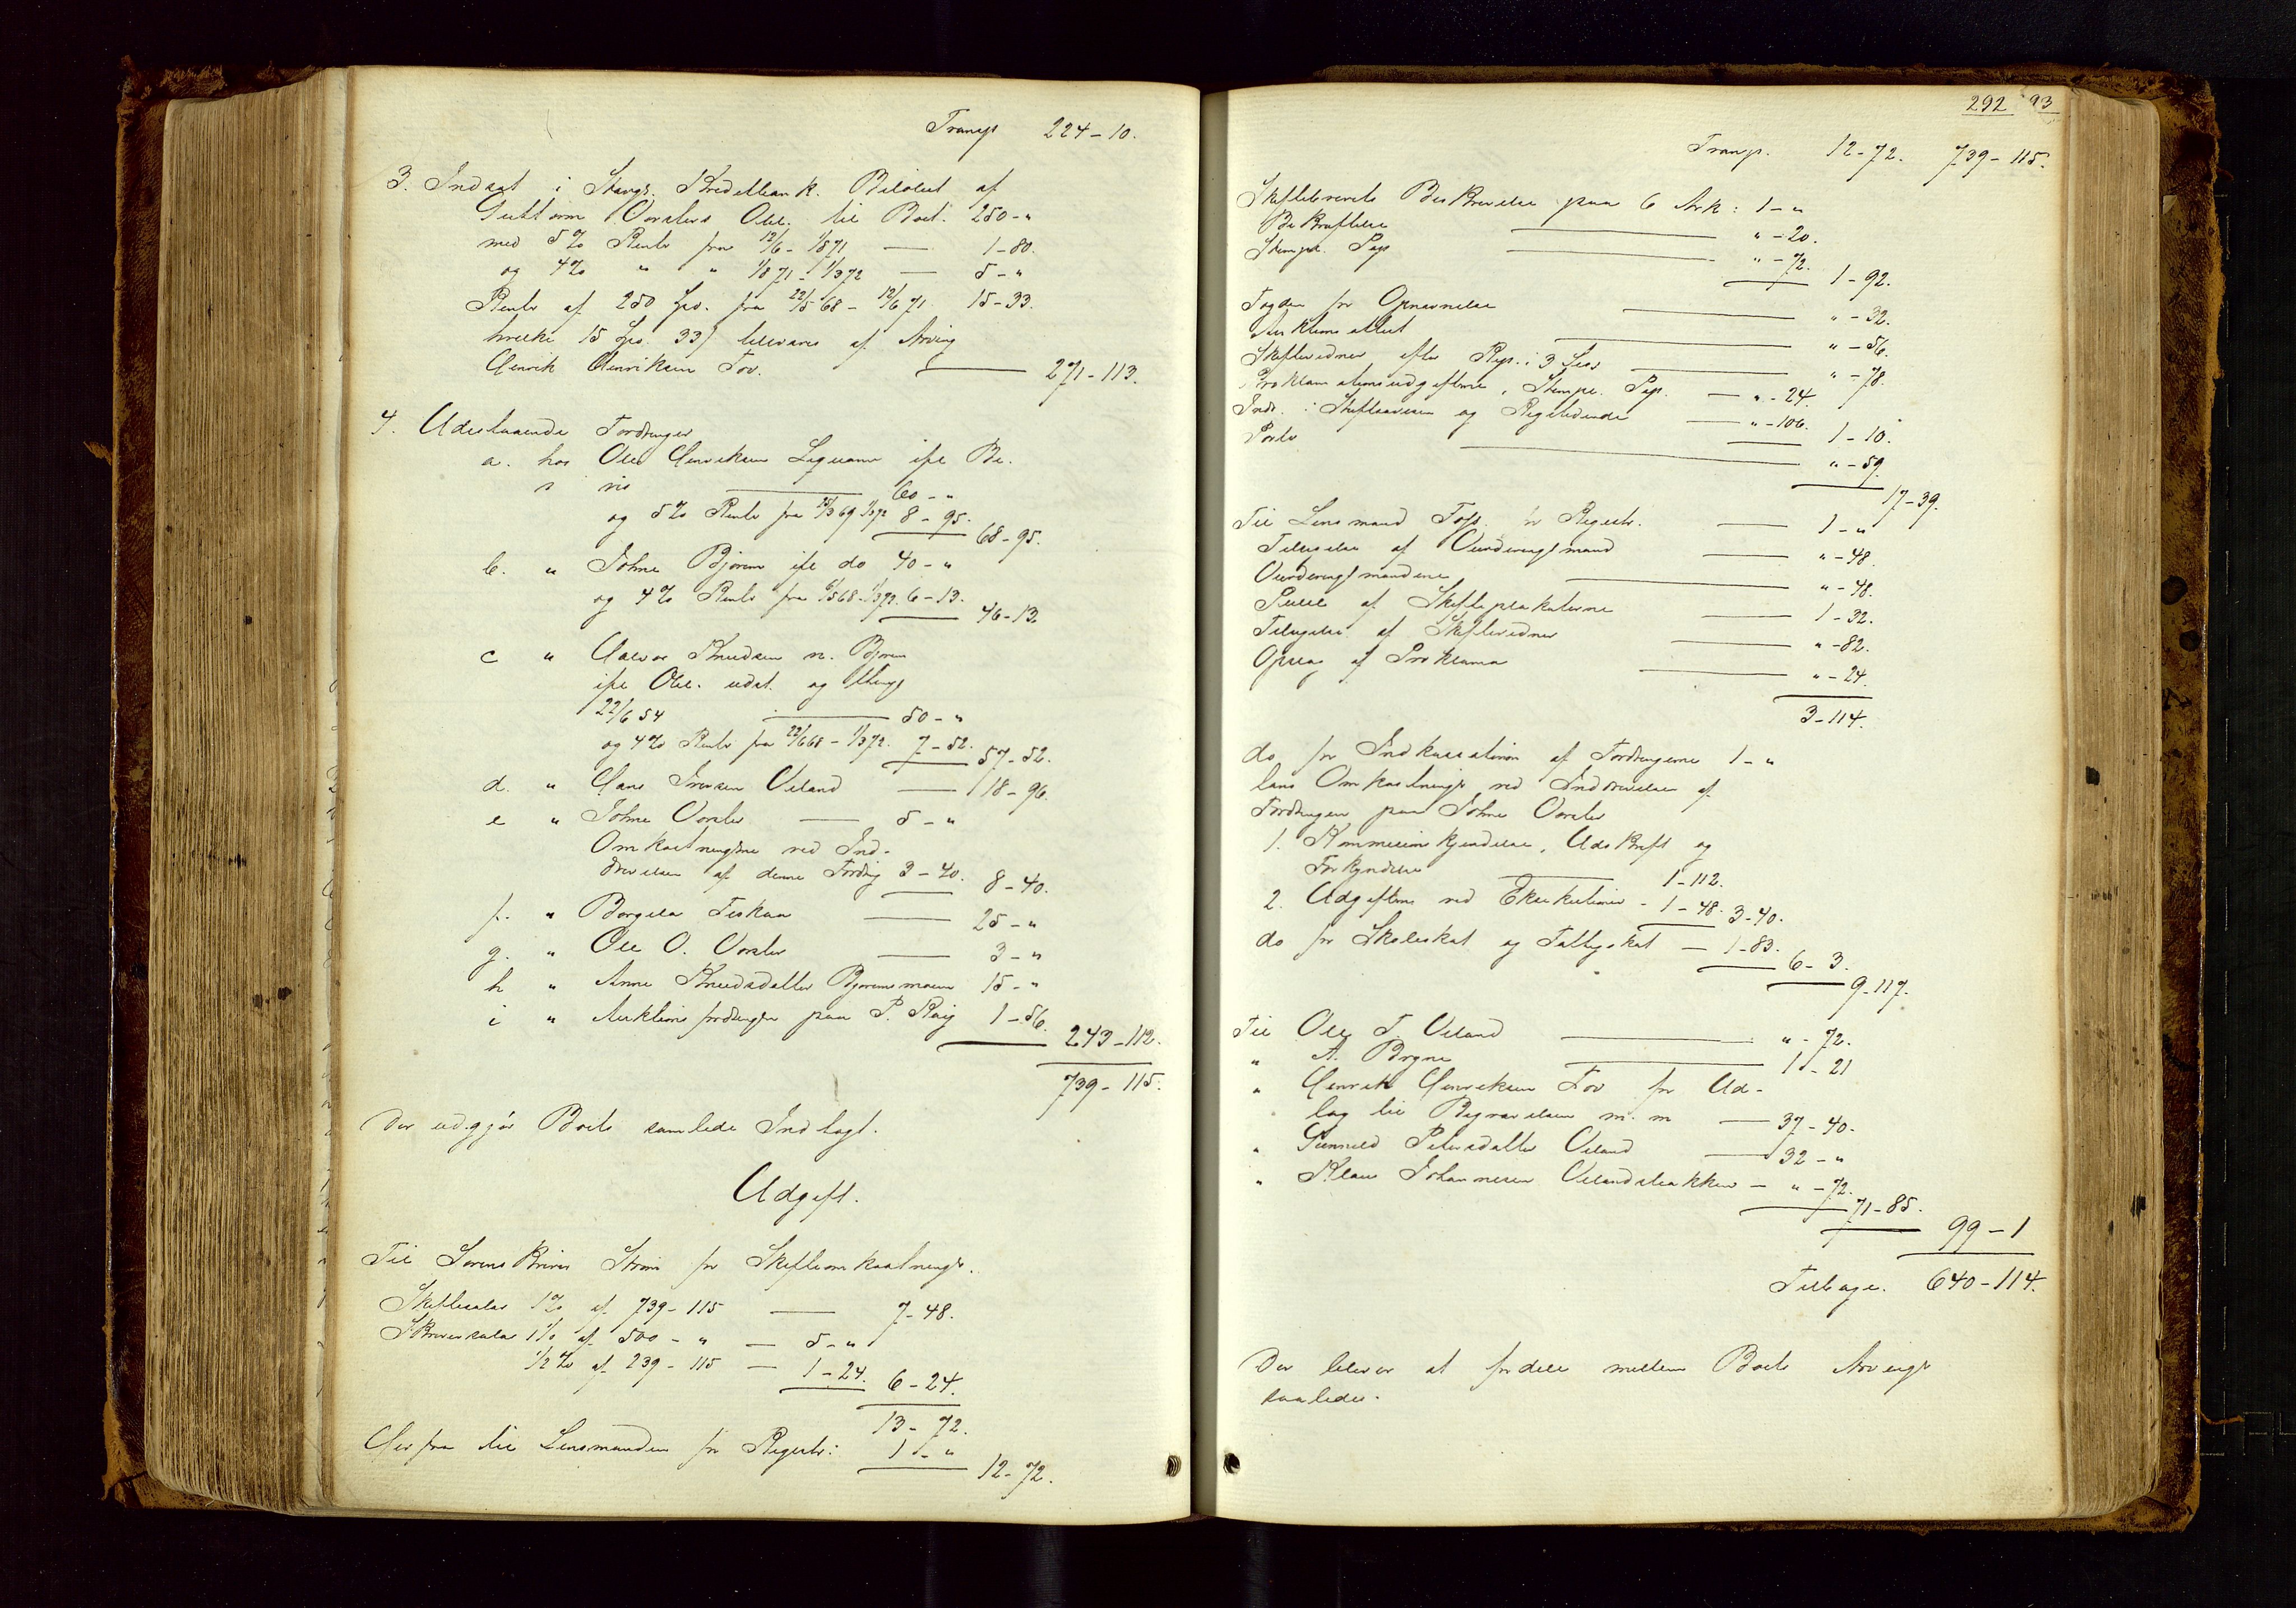 Transp 224 - 10.
3. Indsat i Stavgr. Kreditbank. Beløbet af
Guttorm Vorslers Obl. til Boet. 250 - "
med 5% Rente fra 12/6 - 1/8 71 — 1 - 80.
og 4% " " 1/8 71 - 1/3 72 — 5 - "
Rente af 250 Spd. fra 22/5 68 - 12/6 71 15 - 33.
hvilke 15 Spd. 33 ß tilsvares af Arving
Henrik Henriksen Tov. — 271 - 113.
4. Udestaaende Fordringer
a. hos Ole Henriksen ifl Be-
vis — 60 - "
og 5% Rente fra 15/3 69 1/3 72 8 - 95.
68 - 95.
b. " Johne Bjoren ifl do 40 - "
og 4% Rente fra 6/5 68 - 1/3 72. 6 - 13.
46 - 13.
c " Halvor Knudsen n. Bjoren
ifl Obl. udst. og thingl
22/6 54 — 50 - "
og 4% Rente fra 22/6 68 - 1/3 72. 7 - 52.
57 - 52.
d. " Hans Iversen Veland — 18 - 96.
e " Johne Vorsler — 5 - "
Omkostningerne ved Ind-
drivelsen af denne Fordrg 3 - 40. 8 - 40.
f. " Borgela Teskaa — 25 - "
g. " Ole O. Vorsler — 3 - "
h " Anne Knudsdatter Bjorensmoen 15 - "
i " Auktionsfordringen paa P. Roig 1 - 56.
243 - 112.
739 - 115.
Der udgjør Boets samlede Indtægt.
Udgift.
Til Sorenskriver Strøm for Skifteomkostninger.
Skiftesalær 1% af 739 - 115 — 7 - 48.
Skriversalær 1% af 500 - " — 5 - "
1/2% af 239 - 115 — 1 - 24. 6 - 24.
13 - 72.
Herfra til Lensmanden for Registr: 1 - "
12 - 72.
292 93
Transp. 12 - 72. 739 - 115.
Skiftebrevets Beskrivelse paa 6 Ark: 1 - "
Bekræftelse — " - 20.
Stempl. Pap — " - 72.
1 - 92.
Fogden for Opnævnelse — " - 32.
Auktions attest — " - 56.
Skiftevidner efter Regn. i 3 Sess — " - 78.
Proklamationsudgifterne, Stempl. Pap. — " - 24.
Indr. i Skifteavisen og Rigstidende — " - 106.
1 - 10.
Porto — " - 59.
17 - 39.
Til Lensmand Tofs. for Registr. — 1 - "
Tilsigelse af Vurderingsmænd — " - 48.
Vurderingsmændene — " - 48.
Opslag af Skifteplakaterne — 1 - 32.
Tilsigelse af Skiftevidner — " - 82.
Opslag af Proklama — " - 24.
3 - 114.
do for Indkassation af Fordringerne 1 - "
hans Omkostninger ved Inddrivelsen af
Fordringen paa Johne Vorsler
1. Kommissionskjendelse, Udskrift og
Forkyndelse — 1 - 112.
2. Udgifterne ved Exekutionen - 1 - 48. 3 - 40.
do for Skoleskat og Fattigskat — 1 - 83.
6 - 3.
9 - 117.
Til Ole T. Veland — " - 72.
" A. Bryne — 1 - 21
" Henrik Henriksen Tov for Ud-
læg til Begravelsen m. m — 37 - 40.
" Gunnild Petersdatter Veland — 32 - "
" Klaus Johannesen Velandsbakken — " - 72.
71 - 85.
99 - 1
Tilbage. 640 - 114.
Der bliver at fordele mellem Boets Arvinger
saaledes.